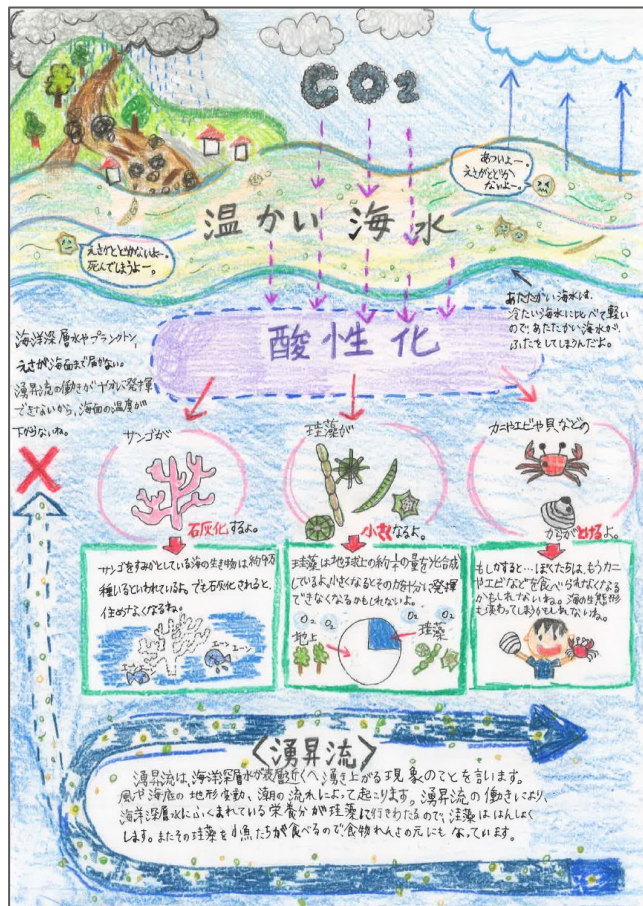 CO2
あついよー。
えさがとどか
ないよー。
温かい海水
えさがとどかないよー。
死んでしまうよー。
あたたかい海水は、
冷たい海水に比べて軽い
ので、あたたかい海水が、
ふたをしてしまうんだよ。
酸性化
海洋深層水やプランクトン、
えさが海面まで届かない。
湧昇流の働きが十分に発揮
できないから、海面の温度が
下がらないね。
サンゴが
石灰化するよ。
珪藻が
小さくなるよ。
カニやエビや貝などの
からがとけるよ。
サンゴをすみかとしている海の生き物は約9万
種いるといわれているよ。でも石灰化されると、
住めなくなるね。
エーン
エーン
珪藻は地球上の約1/4の量を光合成
しているよ。小さくなるとその力が十分に発揮
できなくなるかもしれないよ。
O2 O2 O2 O2
地上
珪藻
もしかすると…ぼくたちは、もうカニ
やエビなどを食べられなくなる
かもしれないね。海の生態形
も変わってしまうかもしれないね。
〈湧昇流〉
湧昇流は、海洋深層水が表層近くへ湧き上がる現象のことを言います。
風や海底の地形変動、潮の流れによって起こります。湧昇流の働きにより、
海洋深層水にふくまれている栄養分が珪藻に行きわたるので、珪藻ははんしょく
します。またその珪藻を小魚たちが食べるので食物れんさの元にもなっています。